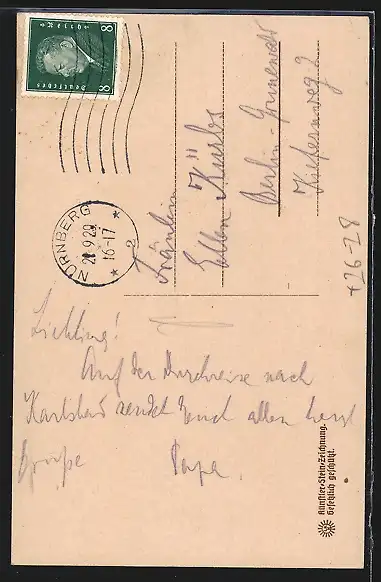 8 8
Deutsches Reich
NÜRNBERG
2
21.9.29
16-17
Fräulein
Ellen
Berlin-Grunewald
Kiefernweg 2
+26-28
Liebling!
Auf der Durchreise nach
Karlsbad sendet Euch allen herzl
Grüsse Papa.
Künstler-Stein-Zeichnung.
Gesetzlich geschützt.